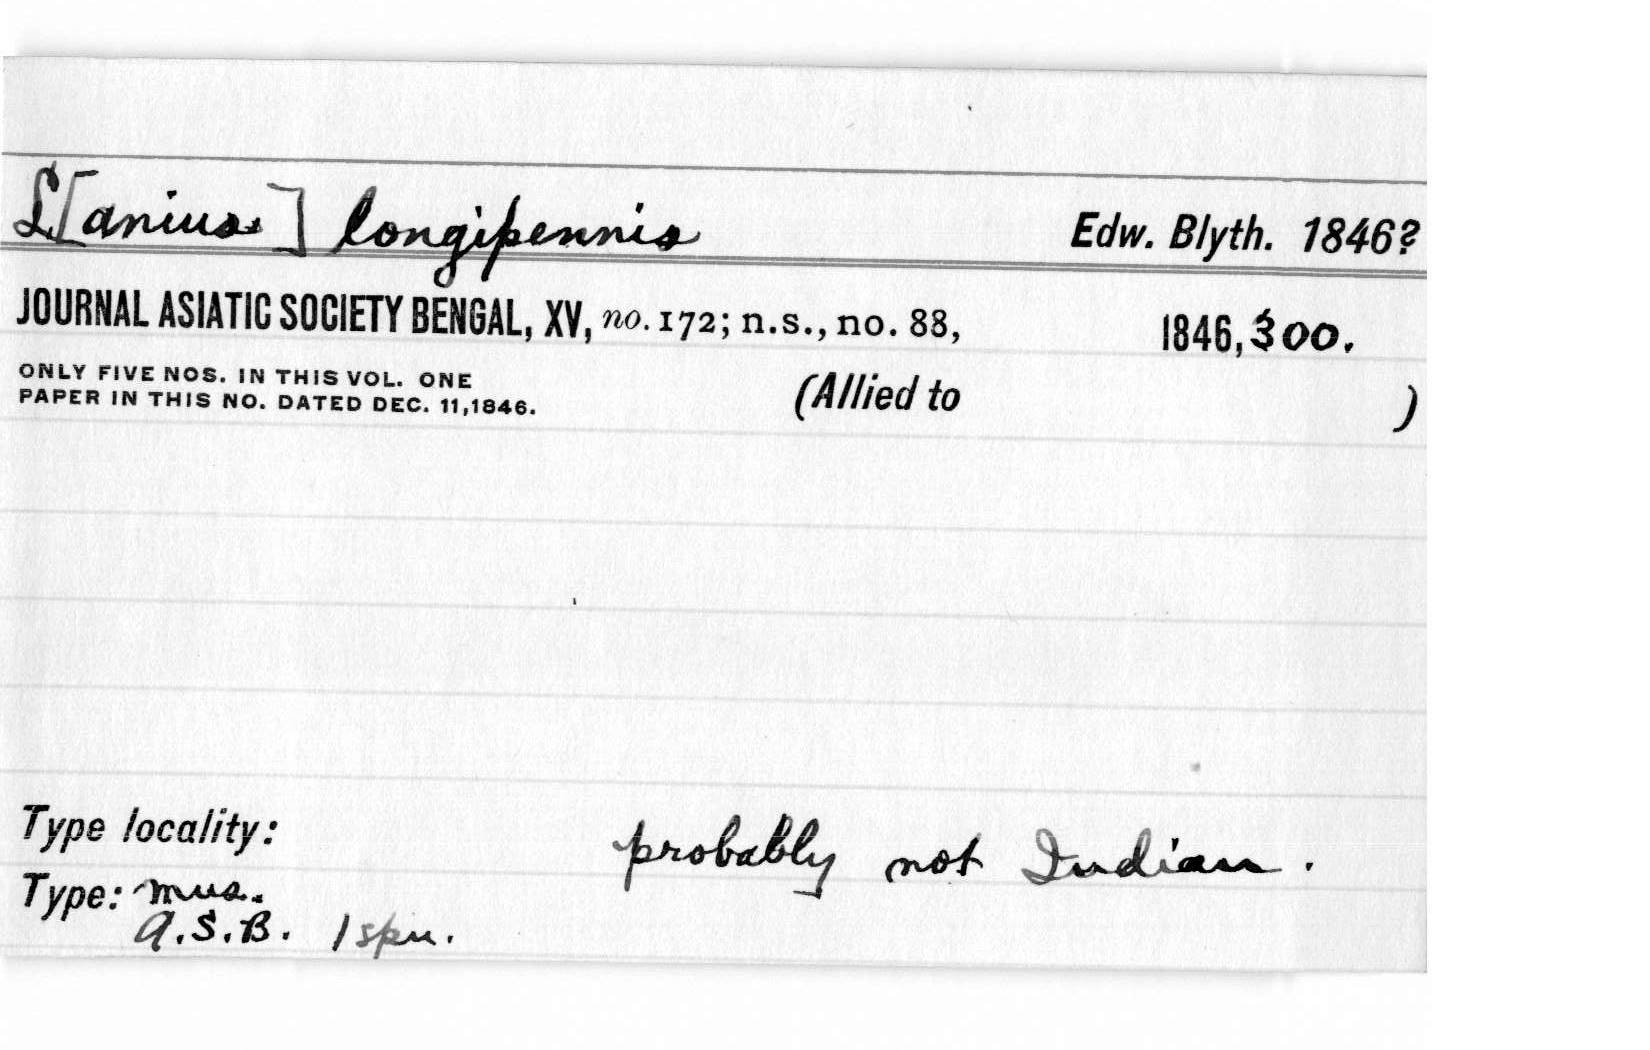 L[anius] longipennis Edw. Blyth. 1846?
JOURNAL ASIATIC SOCIETY BENGAL, XV, no. 172; n.s., no. 88, 1846, 300.
ONLY FIVE NOS. IN THIS VOL. ONE
PAPER IN THIS NO. DATED DEC. 11, 1846.
(Allied to )
Type locality: probably not Indian.
Type: mus.
A.S.B. 1 spn.